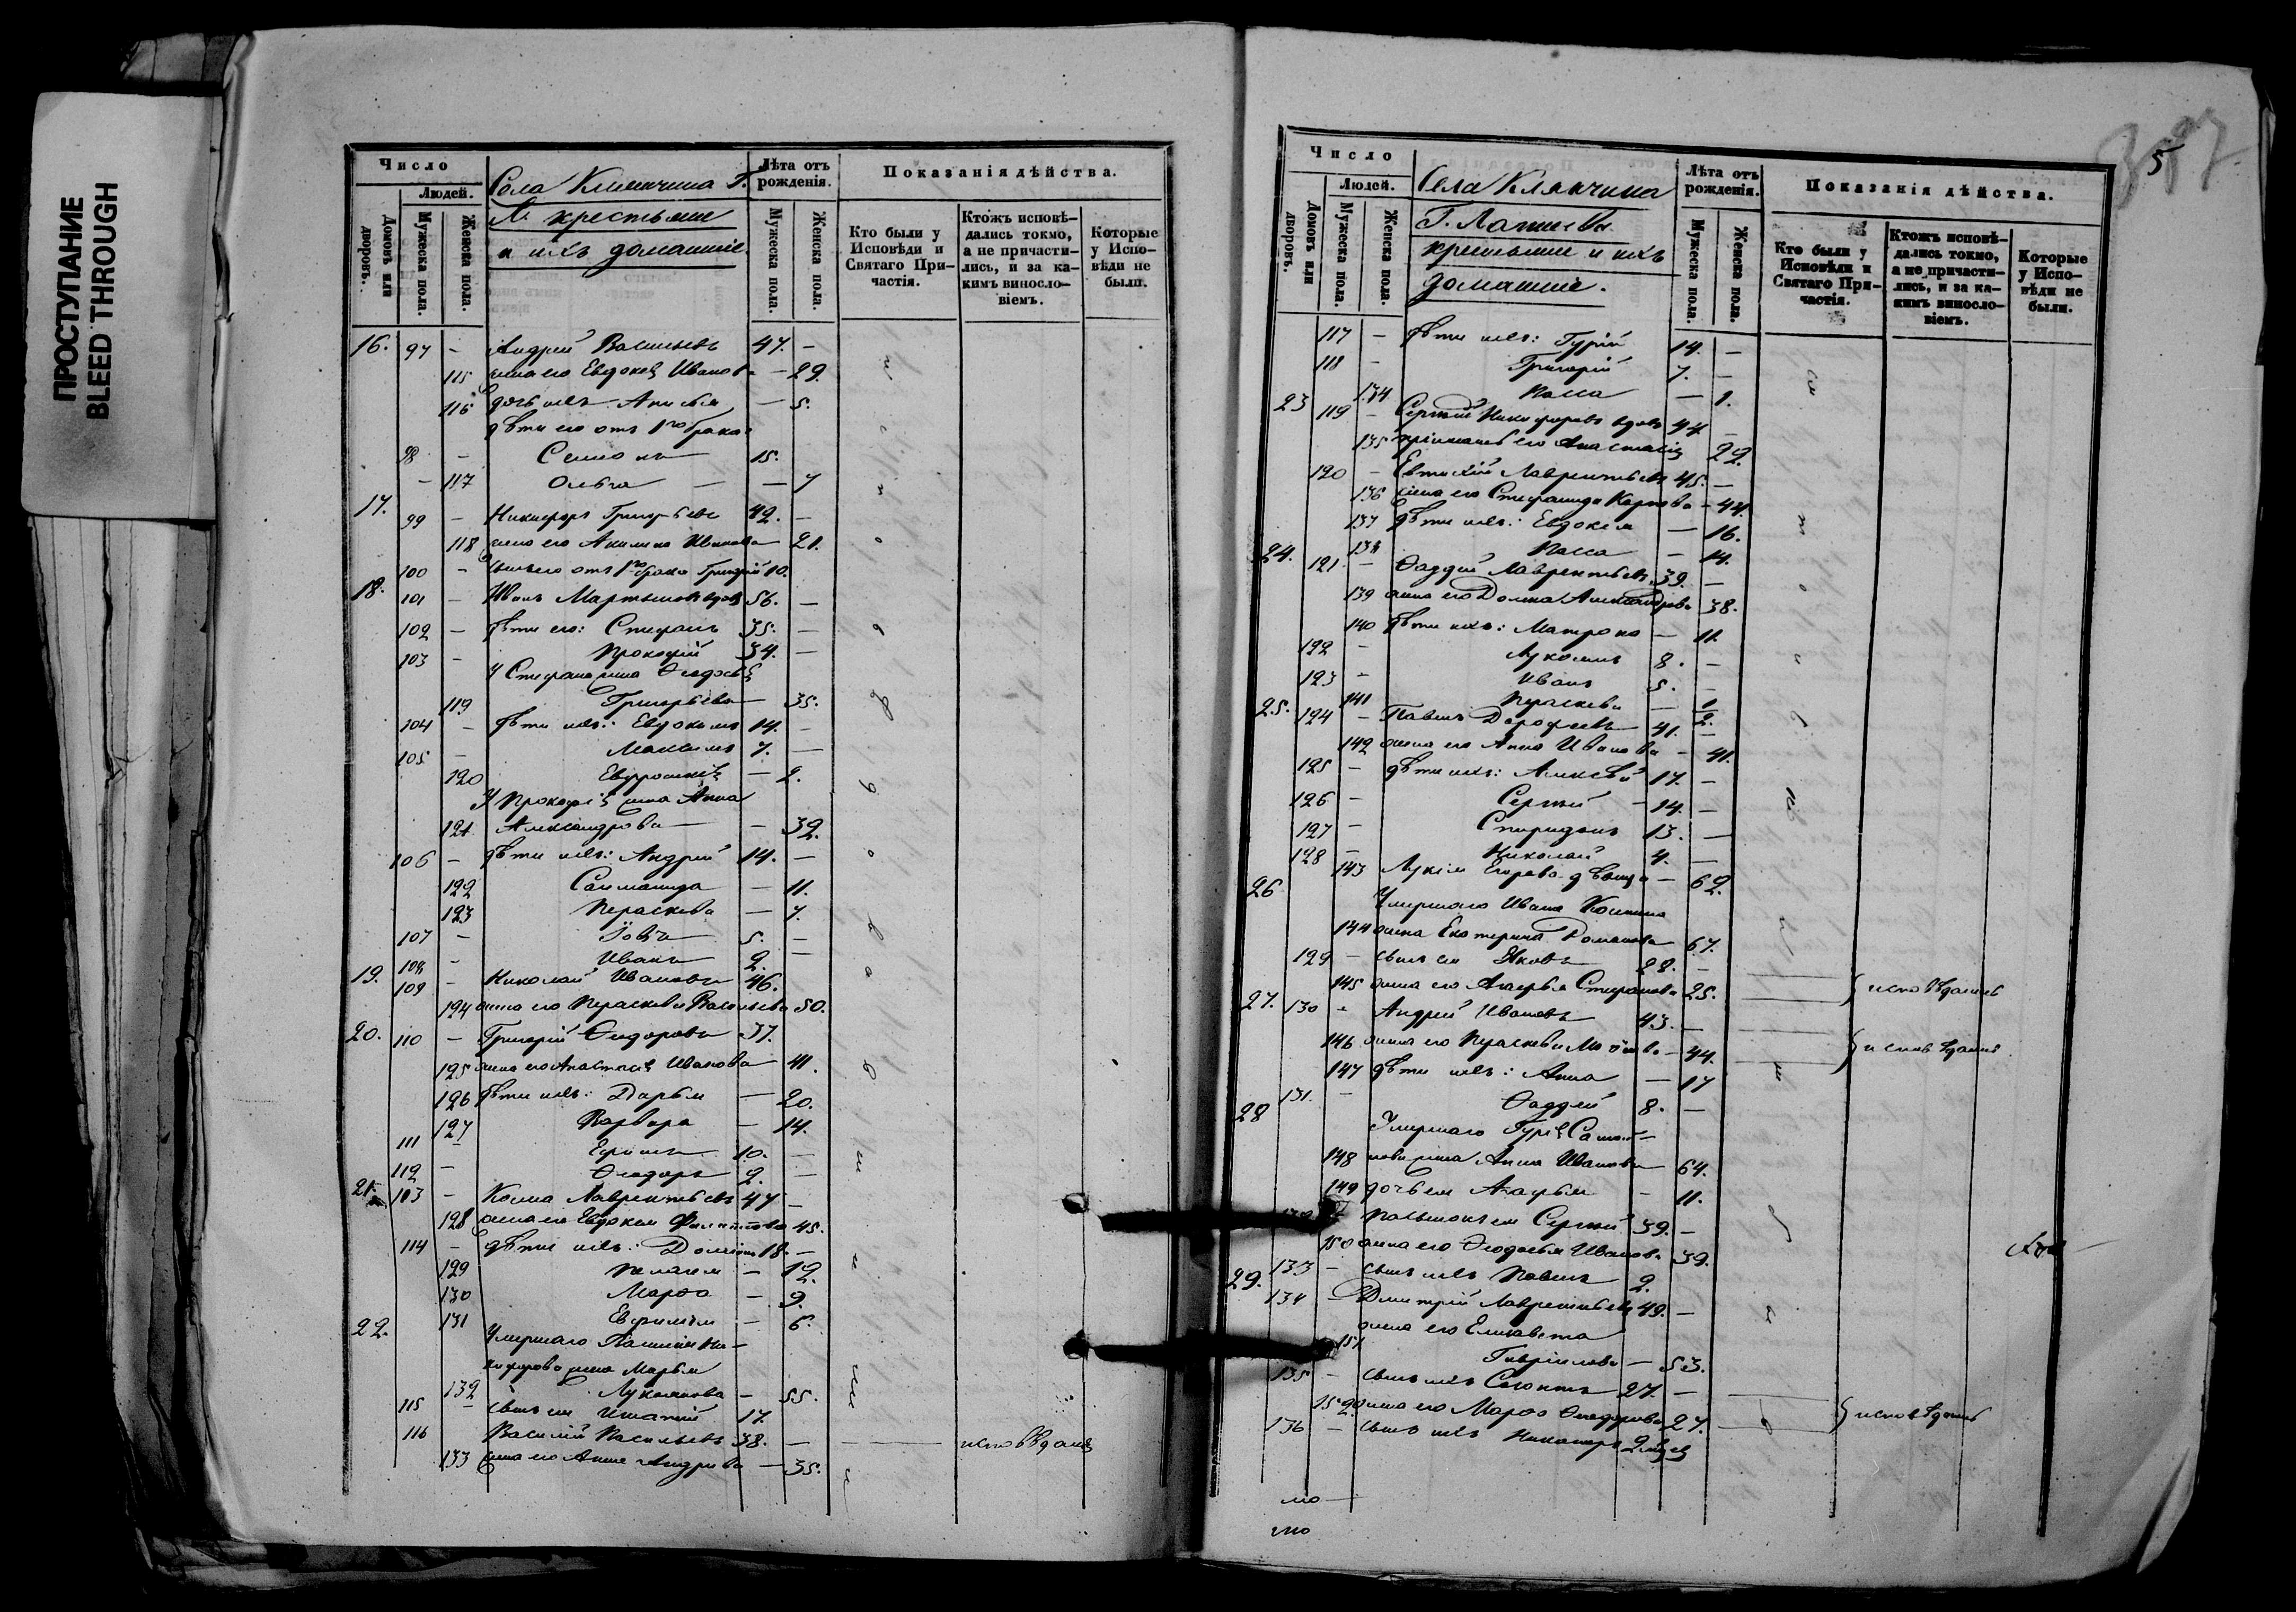 ПРОСТУПАНИЕ
BLEED THROUGH
Число
Людей.
Домовъ или дворовъ.
Мужеска пола.
Женска пола.
Села Клянчина Г.
Л. крестьяне
и ихъ домашніе.
Лѣта отъ рожденія.
Мужеска пола.
Женска пола.
Показанія дѣйства.
Кто были у Исповѣди и Святаго Причастія.
Ктожъ исповѣдались токмо, а не причастились, и за какимъ винословіемъ.
Которые у Исповѣди не были.
16. 97 - Андрей Васильевъ 47. -
115 жена его Евдокія Иванова - 29.
116 дочь ихъ - 5.
дѣти его отъ 1го брака:
98 - 15.
- 117 Ольга - 7
17. 99 - Никифоръ Григорьевъ 42. -
118 жена его Акилина Иванова - 21.
100 - сынъ его отъ 1го брака Григорій 10.
18. 101 - Иванъ Мартыновъ вдовъ 56. -
102 - дѣти его: Стефанъ 35. -
103 - Прокофій 34. -
У Стефана жена Ѳеодосія
119 Григорьева - 35.
104 - дѣти ихъ: Евдокимъ 14. -
105 - Максимъ 7. -
120 Евфросинія - 2.
У Прокофія жена Анна
121 Александрова - 32.
106 - дѣти ихъ: Андрей 14. -
122 - 11.
123 Параскева - 7.
107 - 5. -
108 - Иванъ 2. -
19. 109 - Николай Ивановъ 46.
124 жена его Параскева Васильева 50.
20. 110 - Григорій Ѳеодоровъ 37.
125 жена его Анастасія Иванова 41.
126 дѣти ихъ: Дарья - 20.
127 Варвара - 14.
111 - Ефимъ 10. -
112 - Ѳеодоръ 2. -
21. 113 - Косма Лаврентьевъ 47 -
128 жена его Евдокія Филиппова 45.
114 - дѣти ихъ: 18. -
129 Пелагія - 12.
130 Марѳа - 9.
131 Евфимія - 6.
22. Умершаго
жена Марья
132 Лукоянова - 55.
115 сынъ ея Игнатій 17.
116 Василій Васильевъ 38. - исповѣданъ
133 жена его Анна Андреева - 35.
5
Число
Людей.
Домовъ или дворовъ.
Мужеска пола.
Женска пола.
Села Клянчина
Г. Лапшева
крестьяне и ихъ
домашніе.
Лѣта отъ рожденія.
Мужеска пола.
Женска пола.
Показанія дѣйства.
Кто были у Исповѣди и Святаго Причастія.
Ктожъ исповѣдались токмо, а не причастились, и за какимъ винословіемъ.
Которые у Исповѣди не были.
117 - дѣти ихъ: Гурій 14. -
118 - Григорій 7. -
134 - 1.
23 119 - Сергѣй Никифоровъ вдовъ 44 -
135 его Анастасія 22.
120 - Евтихій Лаврентьевъ 45. -
136 жена его Стефанида Карпова - 44.
137 дѣти ихъ: Евдокія - 16.
138 - 14.
24. 121 - Ѳаддей Лаврентьевъ 39. -
139 жена его Домна Александрова 38.
140 дѣти ихъ: Матрона - 11.
122 - Лукоянъ 8. -
123 - Иванъ 5. -
141 Параскева - 1/2.
25. 124 - Павелъ Дорофеевъ 41. -
142 жена его Анна Иванова - 41.
125 - дѣти ихъ: Алексѣй 17. -
126 - Сергѣй 14. -
127 - Спиридонъ 13. -
128 - Николай 4. -
143 Егорова дѣвица - 62.
26 Умершаго Ивана Козмина
144 жена Екатерина Романова 67.
129 - сынъ ея Яковъ 28. -
145 жена его Агафья Стефанова 25. исповѣданы
27. 130 - Андрей Ивановъ 43. -
146 жена его Параскева - 44. исповѣданы
147 дѣти ихъ: Анна - 17
131. - Ѳаддей 8. -
28 Умершаго Гурія
148 жена Анна Иванова 64.
149 дочь ея Агафья - 11.
132 Сергѣй 39. -
150 жена его Ѳеодосья Иванова 39.
133 - сынъ ихъ Павелъ 2.
29. 134 Дмитрій Лаврентьевъ 49. -
жена его Елизавета
151 Гавріилова - 53.
135 - сынъ ихъ 27. -
152 жена его Марѳа Ѳеодорова 27. исповѣданы
136 - сынъ ихъ